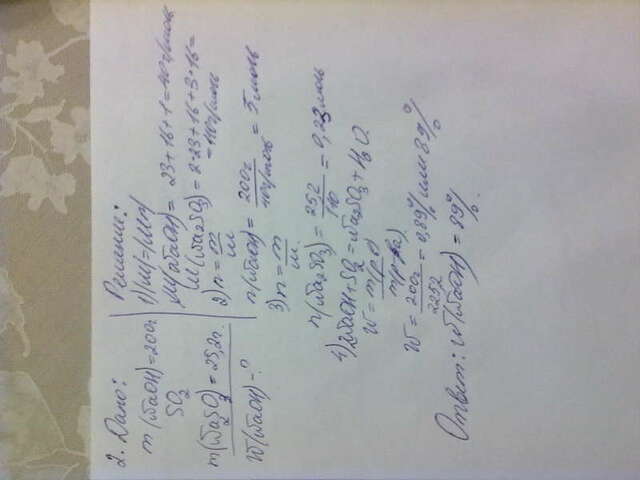 2. Дано:
m(NaOH)=200г
SO2
m(Na2SO3)=25,2г.
W(NaOH)-?
Решение:
1) |M|=|Mr|
M(NaOH)=23+16+1=40г/моль
M(Na2SO3)=2·23+16+3·16=
=110г/моль
2) n=m/M
n(NaOH)=200г/40г/моль=5моль
3) n=m/M
n(Na2SO3)=252/110=0,23моль
4) 2NaOH+SO2=Na2SO3+H2O
W=m(р.в)/m(р-ра)
W=200г/225г=0,89% или 89%
Ответ: W(NaOH)=89%.